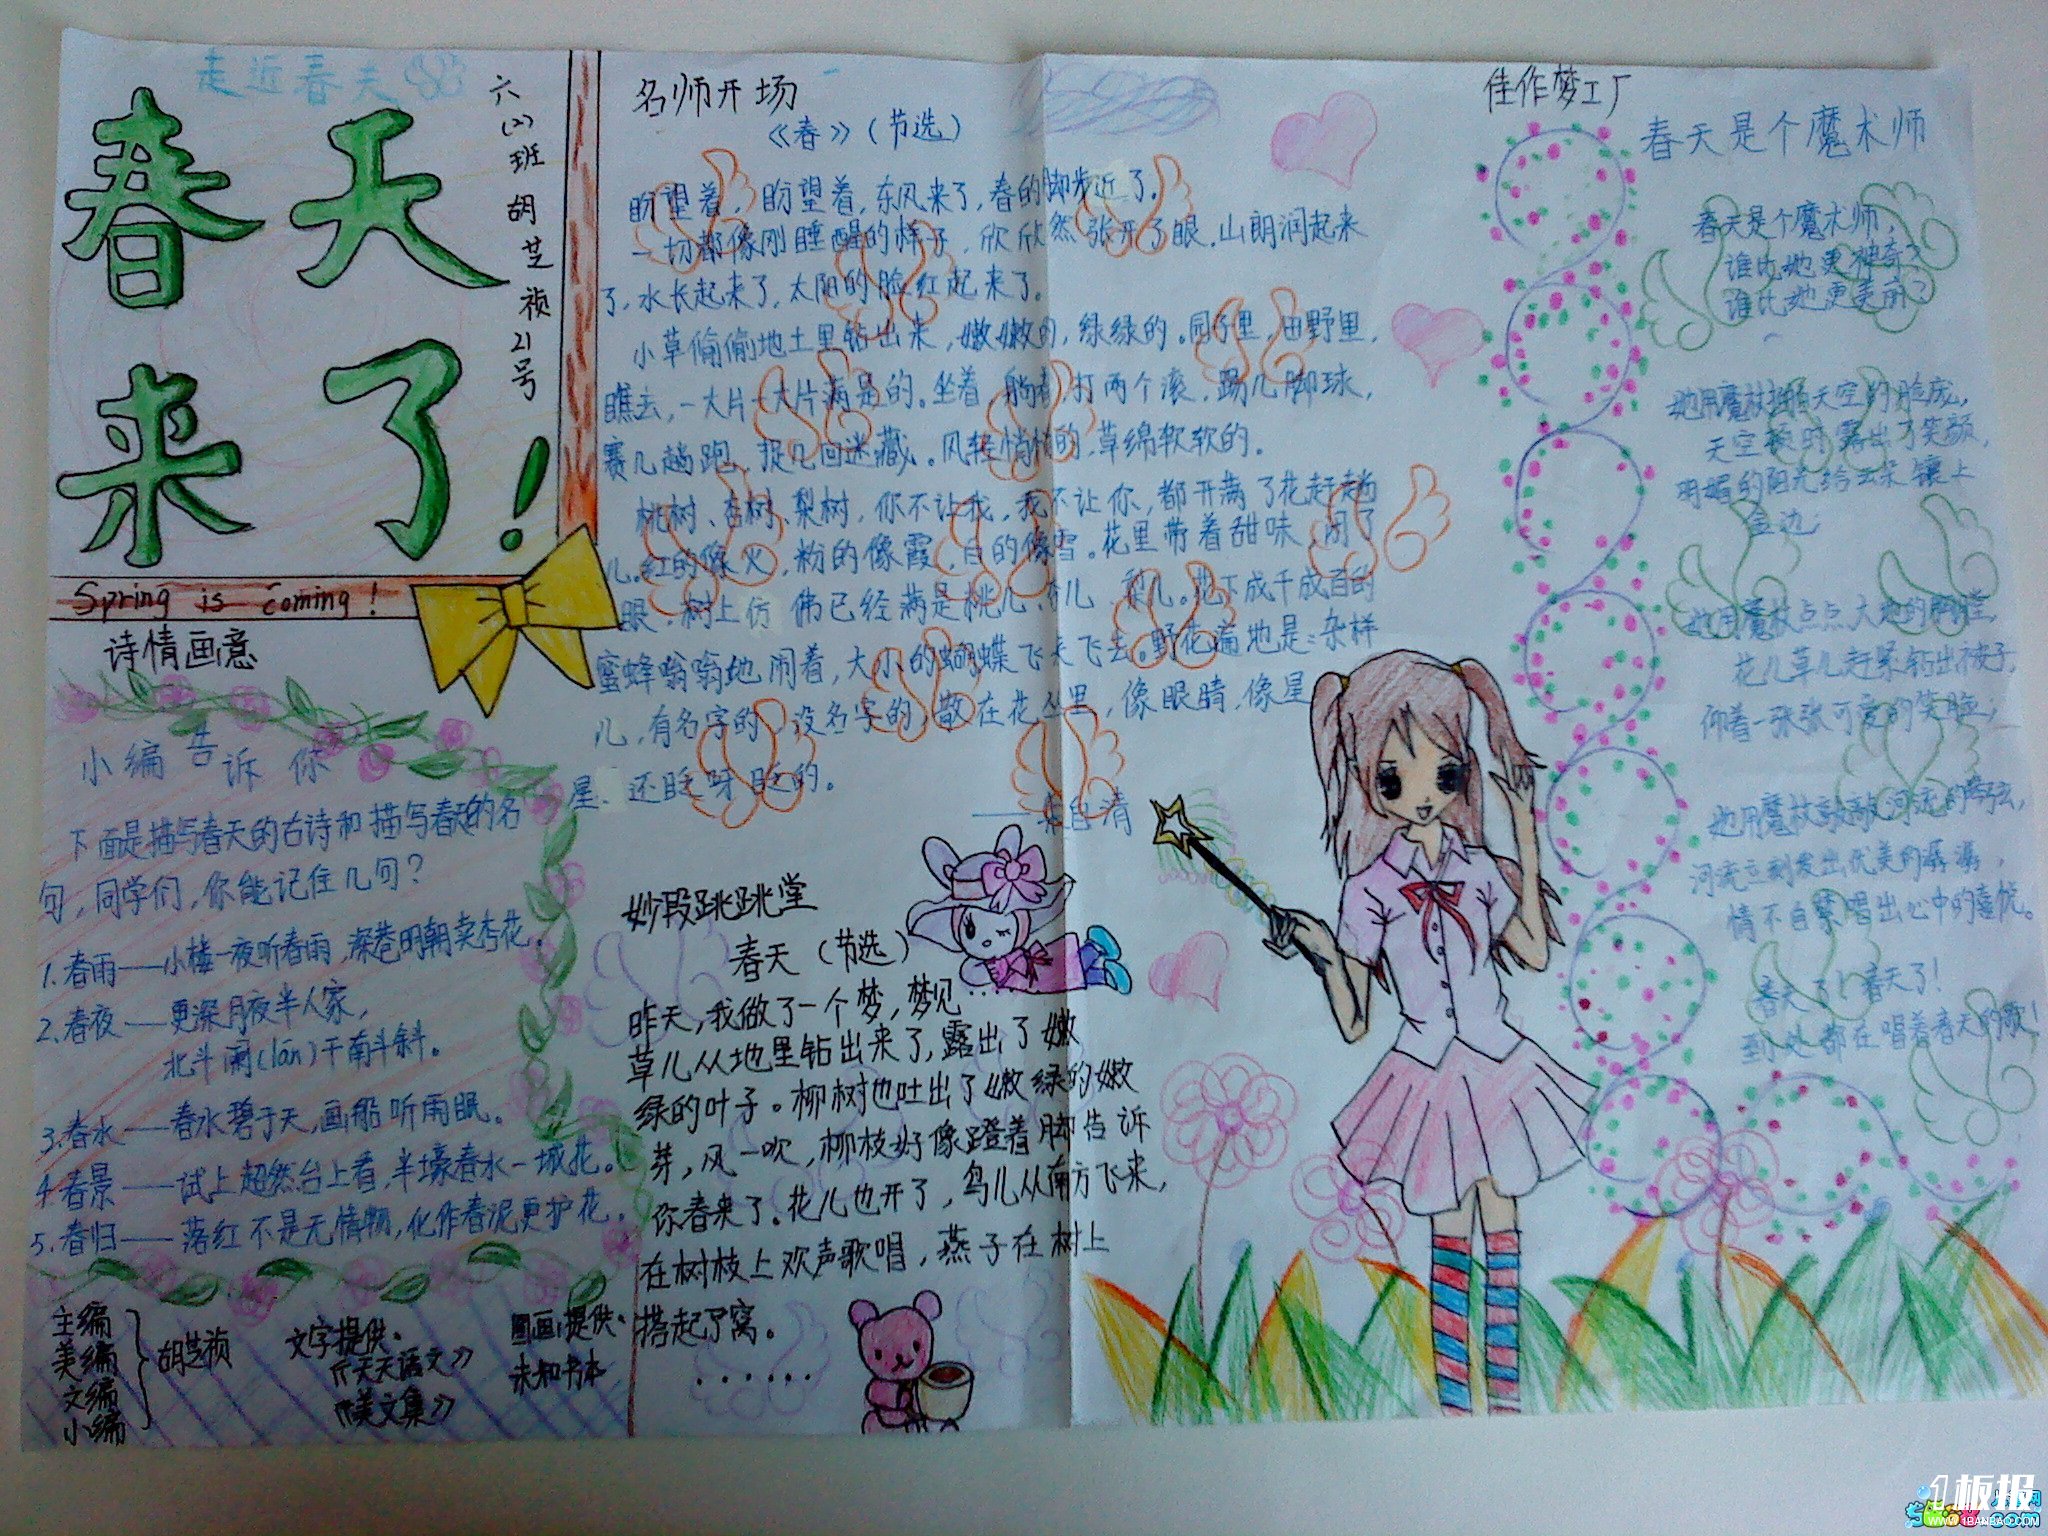 走近春天
春天
来了!
六(2)班 胡芝祯 21号
Spring is coming!
诗情画意
小编告诉你
下面是描写春天的古诗和描写春天的名
句,同学们,你能记住几句?
1.春雨——小楼一夜听春雨,深巷明朝卖杏花。
2.春夜——更深月夜半人家,
北斗阑(lán)干南斗斜。
3.春水——春水碧于天,画船听雨眠。
4.春景——试上超然台上看,半壕春水一城花。
5.春归——落红不是无情物,化作春泥更护花。
主编
美编
文编
小编
胡芝祯
文字提供:
《天天语文》
《美文集》
图画提供:
未知书本
名师开场
《春》(节选)
盼望着,盼望着,东风来了,春的脚步近了。
一切都像刚睡醒的样子,欣欣然张开了眼。山朗润起来
了,水长起来了,太阳的脸红起来了。
小草偷偷地土里钻出来,嫩嫩的,绿绿的。园子里,田野里,
瞧去,一大片一大片满是的。坐着,躺着,打两个滚,踢几脚球,
赛几趟跑,捉几回迷藏。风轻悄悄的,草绵软软的。
桃树、杏树、梨树,你不让我,我不让你,都开满了花赶趟
儿。红的像火,粉的像霞,白的像雪。花里带着甜味,闭了
眼,树上仿佛已经满是桃儿、杏儿、梨儿。花下成千成百的
蜜蜂嗡嗡地闹着,大小的蝴蝶飞来飞去。野花遍地是:杂样
儿,有名字的,没名字的,散在花丛里,像眼睛,像星
星,还眨呀眨的。
——朱自清
妙段跳跳堂
春天(节选)
昨天,我做了一个梦,梦见……
草儿从地里钻出来了,露出了嫩
绿的叶子。柳树也吐出了嫩绿的嫩
芽,风一吹,柳枝好像蹬着脚告诉
你春来了。花儿也开了,鸟儿从南方飞来,
在树枝上欢声歌唱,燕子在树上
搭起了窝。
……
佳作梦工厂
春天是个魔术师
春天是个魔术师,
谁比她更神奇?
谁比她更美丽?
她用魔杖拍拍天空的脸庞,
天空顿时露出了笑颜,
明媚的阳光给云朵镶上
金边;
她用魔杖点点大地的胸膛,
花儿草儿赶紧钻出小被子,
仰着一张张可爱的笑脸;
她用魔杖敲敲河流的琴弦,
河流立刻发出优美的潺潺,
情不自禁唱出心中的喜悦。
春天了!春天了!
到处都在唱着春天的歌!
1板报
WWW.1BANBAO.COM